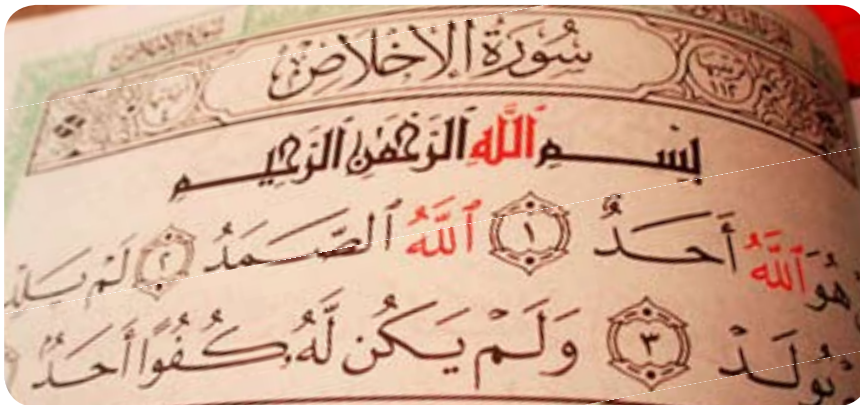 سُورَةُ الإِخْلَاصِ
بِسْمِ ٱللَّهِ ٱلرَّحْمَٰنِ ٱلرَّحِيمِ
هُوَ ٱللَّهُ أَحَدٌ ١ ٱللَّهُ ٱلصَّمَدُ ٢ لَمْ يَلِدْ
يُولَدْ ٣ وَلَمْ يَكُن لَّهُۥ كُفُوًا أَحَدٌۢ